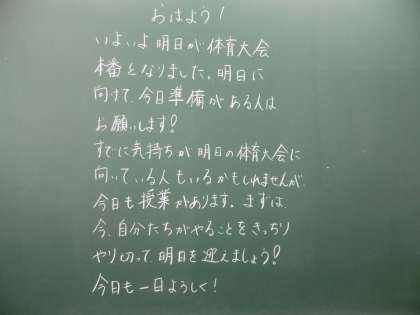 おはよう!
いよいよ明日が体育大会
本番となりました。明日に
向けて、今日準備がある人は
お願いします!
すでに気持ちが明日の体育大会に
向いている人もいるかもしれませんが、
今日も授業があります。まずは、
今、自分たちがやることをきっちり
やり切って、明日を迎えましょう!
今日も一日よろしく!